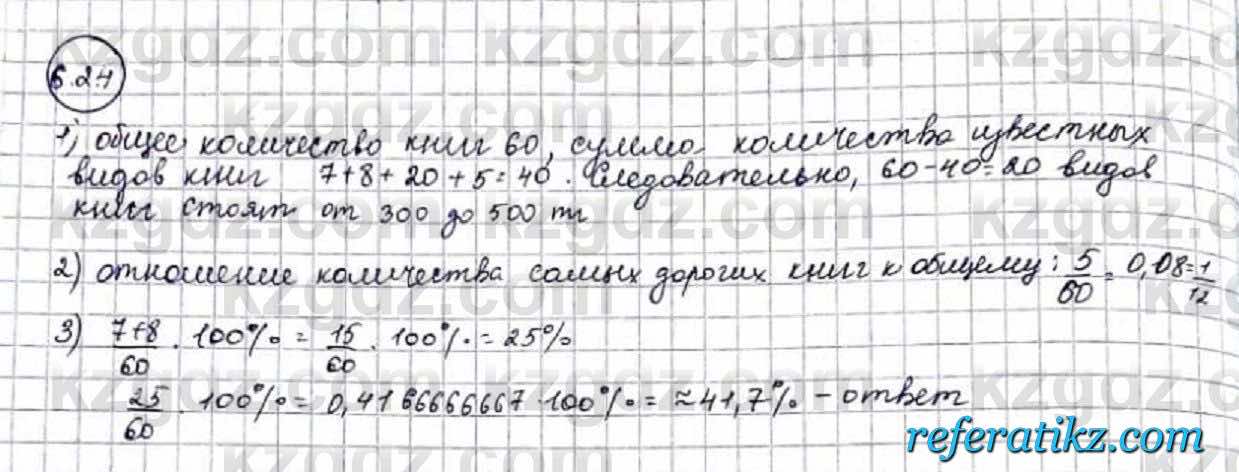 kzgdz.com kzgdz.com kzgdz.com
6.24
1) общее количество книг 60, сумма количества известных
видов книг 7+8+20+5=40. Следовательно, 60-40=20 видов
книг стоят от 300 до 500 тг
2) отношение количества самых дорогих книг к общему: 5/60 = 0,08=1/12
3) 7+8/60 · 100% = 15/60 · 100% = 25%
25/60 · 100% = 0,4166666667·100% = ≈41,7% - ответ
referatikz.com